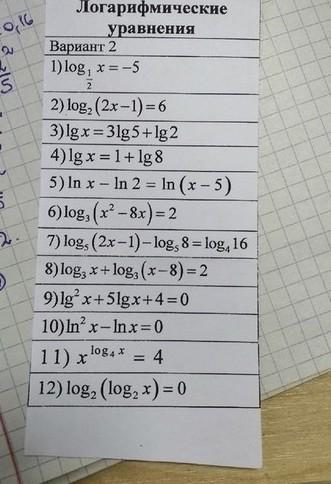 Логарифмические
уравнения
Вариант 2
1) log_{1/2} x = −5
2) log₂(2x−1) = 6
3) lg x = 3lg5 + lg2
4) lg x = 1 + lg8
5) ln x − ln 2 = ln (x − 5)
6) log₃(x² − 8x) = 2
7) log₅(2x−1) − log₅8 = log₄16
8) log₃x + log₃(x−8) = 2
9) lg²x + 5lgx + 4 = 0
10) ln²x − lnx = 0
11) x^{log₄ x} = 4
12) log₂(log₂x) = 0
0,16
2
2.